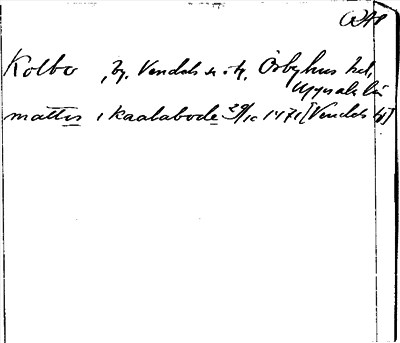 Kolbo , by, Vendels sn o. tg, Örbyhus hd,
Uppsala län
mattis i kaalabode 29/10 1471 [Vendels tg]